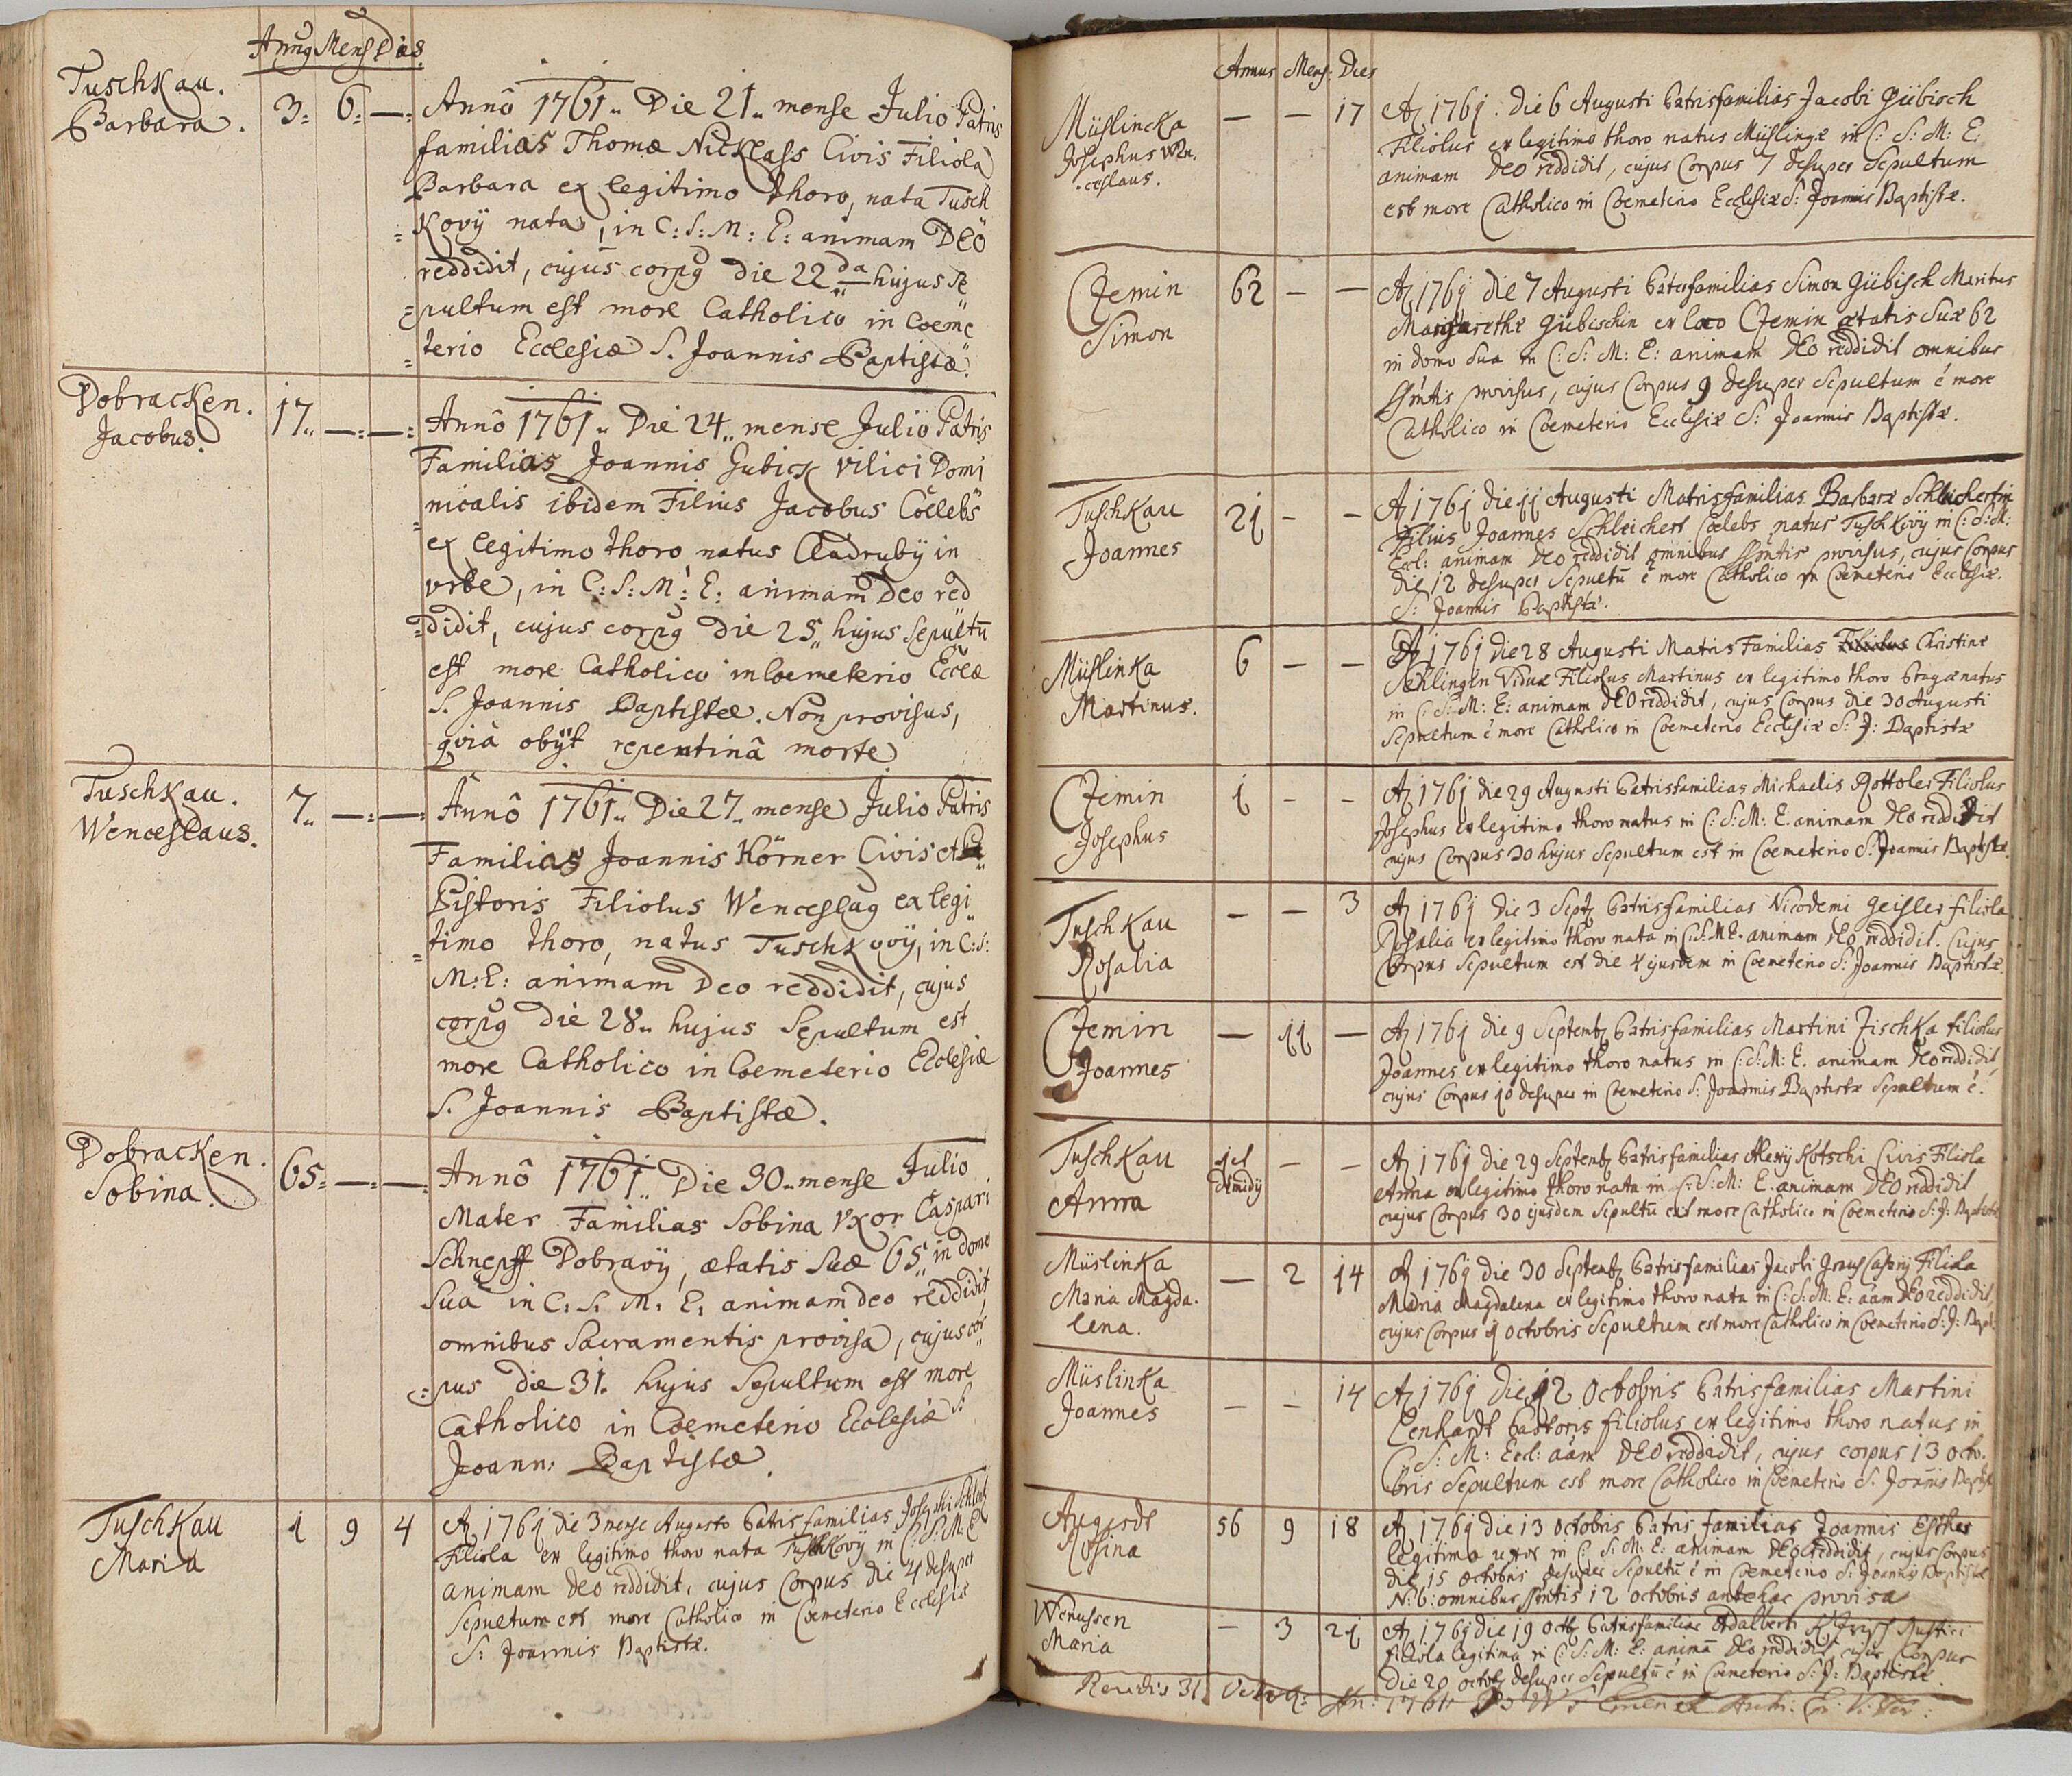 Annus Mens Dies
Tuschkau.
Barbara.
3. 6. —
Annô 1761 Die 21 mense Julio Patris
familias Thomæ Nicklass Civis Filiola
Barbara ex legitimo thoro, nata Tusch
kovÿ nata, in C: S: M: E: animam DEO
reddidit, cujus corpus die 22da hujus se
pultum est more Catholico in Coeme
terio Ecclesiæ S. Joannis Baptistæ.
Dobracken.
Jacobus.
17 — —
Annô 1761 Die 24 mense Julio Patris
Familias Joannis Gubick Vilici Domi
nicalis ibidem Filius Jacobus Coelebs
ex legitimo thoro natus Cladrubÿ in
urbe, in C: S: M: E: animam Deo red
didit, cujus corpus die 25 hujus Sepultū
est more Catholico in Coemeterio Eccl͠æ
S. Joannis Baptistæ. Non provisus,
quià obÿt repentinâ morte
Tuschkau.
Wenceslaus.
7 — —
Annô 1761 Die 27 mense Julio Patris
Familias Joannis Körner Civis et
Pistoris Filiolus Wenceslaus ex legi
timo thoro, natus Tuschkovÿ, in C: S:
M: E: animam Deo reddidit, cujus
corpus die 28 hujus Sepultum est
more Catholico in Coemeterio Ecclesiæ
S. Joannis Baptistæ.
Dobracken.
Sobina.
65 — —
Annô 1761 Die 30 mense Julio
Mater Familias Sobina Uxor Caspari
Schnepff Dobravÿ, ætatis Suæ 65, in domo
Sua in C: S: M: E: animam deo reddidit
omnibus Sacramentis provisa, cujus cor
pus die 31. hujus Sepultum est more
Catholico in Coemeterio Ecclesiæ S:
Joann: Baptistæ.
Tuschkau
Maria
1 9 4
A 1761 die 3 mense Augusto Patris familias Josephi
Filiola ex legitimo thoro nata Tuschkovÿ in C: S: M: E:
animam Deo reddidit, cujus Corpus die 4 desuper
Sepultum est more Catholico in Coemeterio Ecclesiæ
S: Joannis Baptistæ.
Annus Mens: Dies
Müslincka
Josephus Wen.
ceslaus.
— — 17
A 1761: die 6 Augusti Patrisfamilias Jacobi Gübisch
Filiolus ex legitimo thoro natus Müslingæ in C: S: M: E:
animam DEO reddidit, cujus Corpus 7 desuper Sepultum
est more Catholico in Coemeterio Ecclesiæ S: Joannis Baptistæ.
Czemin
Simon
62 — —
A 1761 die 7 Augusti Paterfamilias Simon Gübisch Maritus
Margarethæ Gübischin ex loco Czemin ætatis Suæ 62
in domo Sua in C: S: M: E: animam DEO reddidit omnibus
Ssmtis provisus, cujus Corpus 9 desuper Sepultum ē more
Catholico in Coemeterio Ecclesiæ S: Joannis Baptistæ.
Tuschkau
Joannes
21 — —
A 1761 die 11 Augusti Matrisfamilias Barbaræ Schleichertin
Filius Joannes Schleichert Coelebs natus Tuschkovÿ in C: S: M:
Eccl: animam DEO reddidit omnibus Ssmtis provisus, cujus Corpus
die 12 desuper Sepultū ē more Catholico in Coemeterio Ecclesiæ
S: Joannis Baptistæ.
Müslinka
Martinus.
6 — —
A 1761 die 28 Augusti Matris Familias Christinæ
Viduæ Filiolus Martinus ex legitimo thoro natus
in C: S: M: E: animam DEO reddidit, cujus Corpus die 30 Augusti
Sepultum ē more Catholico in Coemeterio Ecclesiæ S: J: Baptistæ
Czemin
Josephus
1 — —
A 1761 die 29 Augusti Patrisfamilias Michaelis Filiolus
Josephus ex legitimo thoro natus in C: S: M: E: animam DEO reddidit
cujus Corpus 30 hujus Sepultum est in Coemeterio S: Joannis Baptistæ.
Tuschkau
Rosalia
— — 3
A 1761 die 3 Sept Patrisfamilias Nicodemi Geisler filiola
Rosalia ex legitimo thoro nata in C: S: M: E: animam DEO reddidit. Cujus
Corpus Sepultum est die 4 ejusdem in Coemeterio S: Joannis Baptistæ.
Czemin
Joannes
— 11 —
A 1761 die 9 Septemb Patrisfamilias Martini Zischka filiolus
Joannes ex legitimo thoro natus in C: S: M: E: animam DEO reddidit,
cujus Corpus 10 desuper in Coemeterio S: Joannis Baptistæ Sepultum ē.
Tuschkau
Anna
— —
A 1761 die 29 Septemb Patrisfamilias Alexÿ Kotschi Civis Filiola
Anna ex legitimo thoro nata in C: S: M: E: animam DEO reddidit
cujus Corpus 30 ejusdem Sepultū est more Catholico in Coemeterio S: J: Baptistæ
Müslinka
Maria Magda.
lena.
— 2 14
A 1761 die 30 Septemb Patrisfamilias Jacobi Filiola
Maria Magdalena ex legitimo thoro nata in C: S: M: E: aam DEO reddidit,
cujus Corpus 1 Octobris Sepultum est more Catholico in Coemeterio S: J: Bapt:
Müslinka
Joannes
— — 14
A 1761 die 12 Octobris Patrisfamilias Martini
Lenhardt Pastoris filiolus ex legitimo thoro natus in
C: S: M: Eccl: aam DEO reddidit, cujus corpus 13 Octo.
bris Sepultum est more Catholico in Coemeterio S. Joannis Baptistæ
Augezdt
Rosina
56 9 18
A 1761 die 13 Octobris Patris familias Joannis Esther
legitima uxor in C: S: M: E: animam DEO reddidit, cujus Corpus
die 15 Octobris desuper Sepultū ē in Coemeterio S: Joannis Baptistæ
N: 6: omnibus Ssmtis 12 octobris antehac provisa
Wenussen
Maria
— 3 21
A 1761 die 19 Octb Patrisfamilias Adalberti Rustici
filiola legitima in C: S: M: E: animā DEO reddidit cujus Corpus
die 20 octob desuper Sepultū ē in Coemeterio S: J: Baptistæ.
31